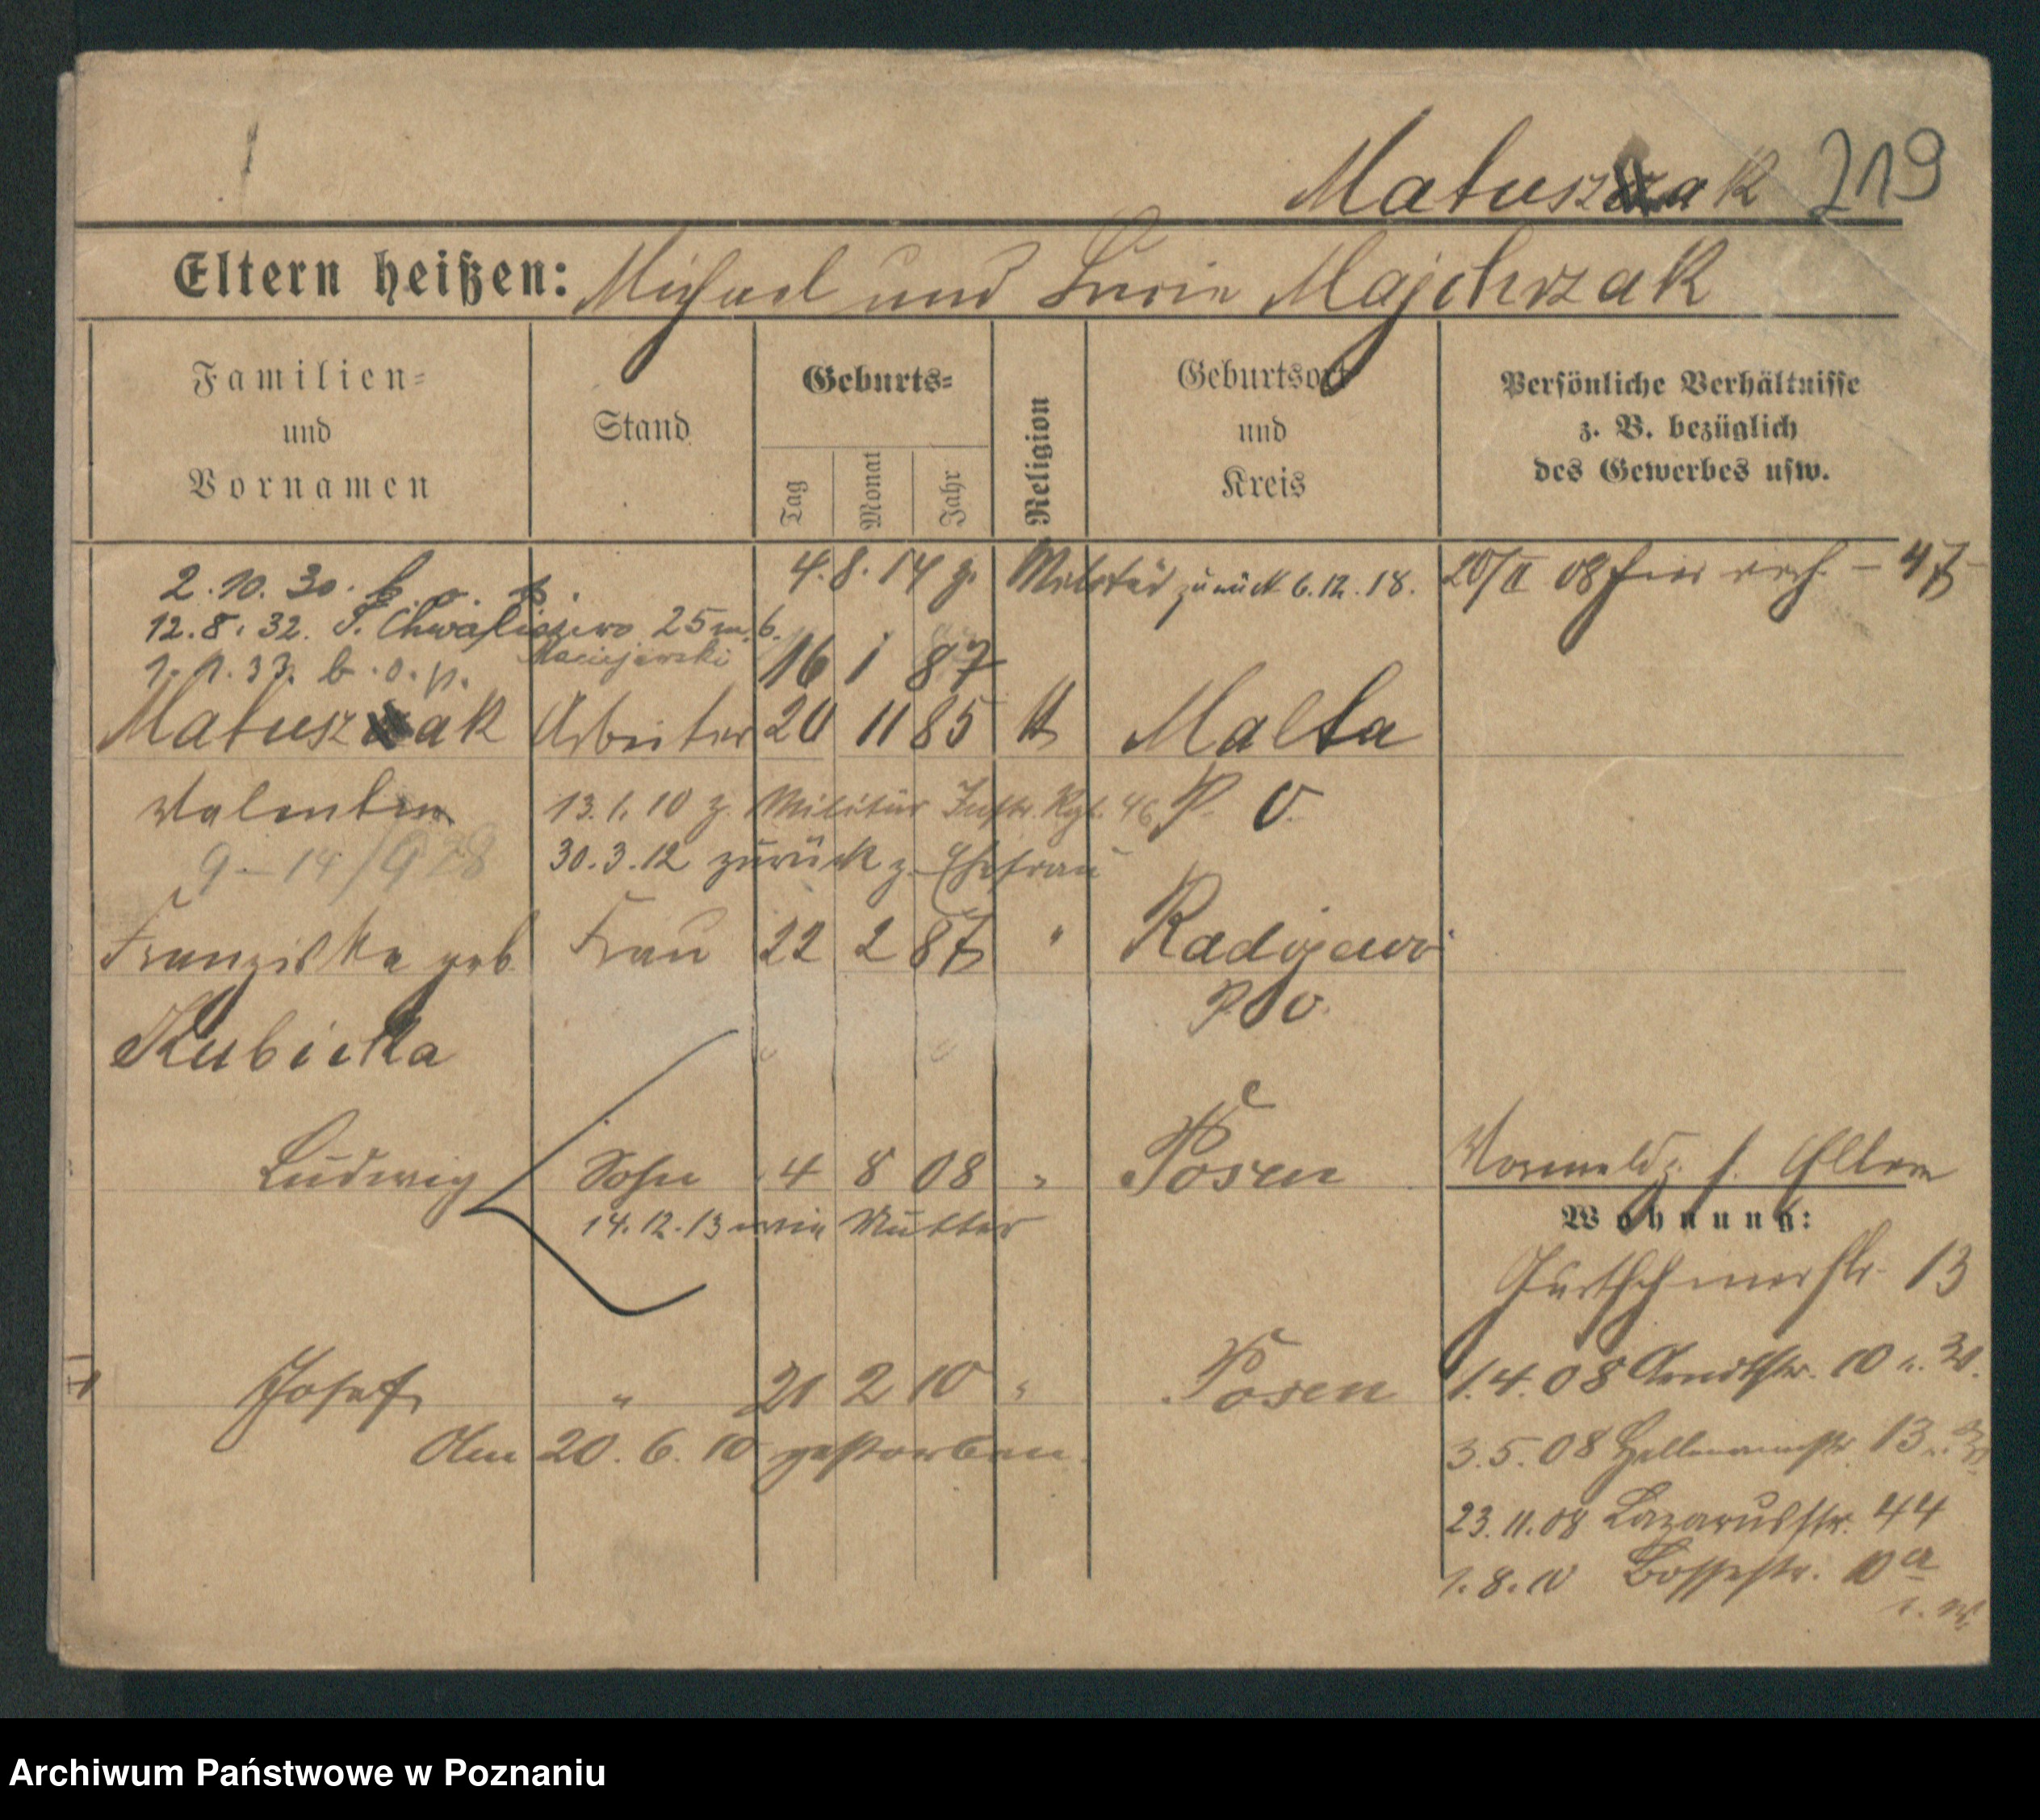 Matuszak 219
Eltern heißen: Michael und Lucie Majchrzak
Familien-
und
Vornamen
Stand
Geburts-
Tag
Monat
Jahr
Religion
Geburtsort
und
Kreis
Persönliche Verhältnisse
z. B. bezüglich
des Gewerbes usw.
2.10.30. b. o. p.
4.8.14 z. Militär zurück 6.12.18.
20/II 08
12.8.32. S. Chwaliszewo 25 m. 6.
Maciejewski
1.1.33. b. o. p.
16 1 87
Matuszak Arbeiter 20 11 85 k Malta
Valentin 13.1.10 z. Militär Inftr. Rgt. 46 P. O.
9-14/928 30.3.12 zurück z. Ehefrau
Franziska geb. Frau 22 2 87 " Radojewo
P. O.
Kubicka
Ludwig Sohn 4 8 08 " Posen
14.12.13 wie Mutter
Vormeldg. s. Eltern
Wohnung:
13
Josef " 21 2 10 " Posen
Am 20.6.10 gestorben.
1.4.08 Arndtstr. 10
3.5.08 13
23.11.08 Lazarusstr. 44
1.8.10 Bossestr. 10a
Archiwum Państwowe w Poznaniu